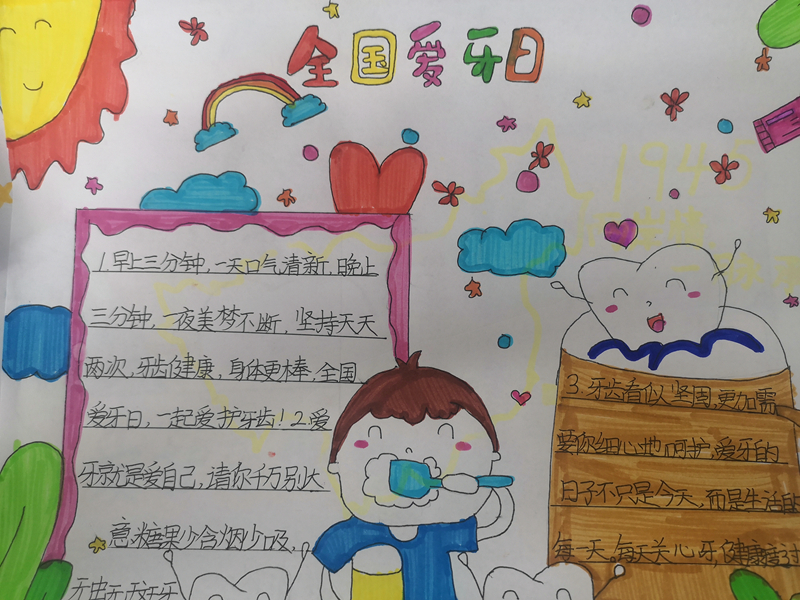 全国爱牙日
1945
1.早上三分钟,一天口气清新,晚上
三分钟,一夜美梦不断,坚持天天
两次,牙齿健康,身体更棒,全国
爱牙日,一起爱护牙齿!2.爱
牙就是爱自己,请你千万别大
意.糖果少含烟少吸,
3.牙齿看似坚固,更加需
要你细心地呵护,爱牙的
日子不只是今天,而是生活的
每一天。每天关心牙,健康度过